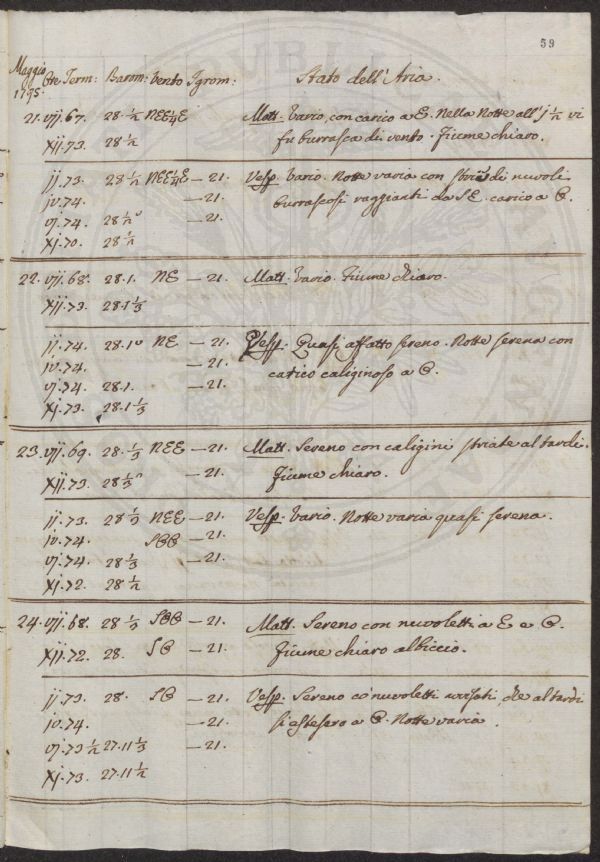 59
Maggio
1795. Ore Term: Barom: Vento Igrom: Stato dell'Aria.
21. vij. 67. 28.½ NEE¼E Matt. Vario, con carico a E. Nella Notte all'j ½ vi
xij. 73. 28½ fu burrasca di vento. Fiume chiaro.
ij. 73. 28½ NEE¼E — 21. Vesp. Vario. Notte varia con di nuvoli
iv. 74. — 21. burrascosi raggianti da SE. carico a O.
vj. 74. 28½ — 21.
xj. 70. 28½
22. vij. 68. 28.1. NE — 21. Matt. Vario. Fiume chiaro.
xij. 73. 28.1⅓
ij. 74. 28.1 NE — 21. Vesp. Quasi affatto sereno. Notte serena con
iv. 74. — 21. carico caliginoso a O.
vj. 74. 28.1. — 21.
xj. 73. 28.1⅓
23. vij. 69. 28.⅓ NEE — 21. Matt. Sereno con caligini striate al tardi.
xij. 73. 28⅓ — 21. Fiume chiaro.
ij. 73. 28⅓ NEE — 21. Vesp. Vario. Notte varia quasi serena.
iv. 74. SOO — 21.
vj. 74. 28⅓ — 21.
xj. 72. 28½
24. vij. 68. 28⅓ SOO — 21. Matt. Sereno con nuvoletti a E e O.
xij. 72. 28. SO — 21. Fiume chiaro albiccio.
ij. 73. 28. SO — 21. Vesp. Sereno co' nuvoletti che al tardi
iv. 74. — 21. si estesero a O. Notte varia.
vj. 73½ 27.11⅓ — 21.
xj. 73. 27.11½